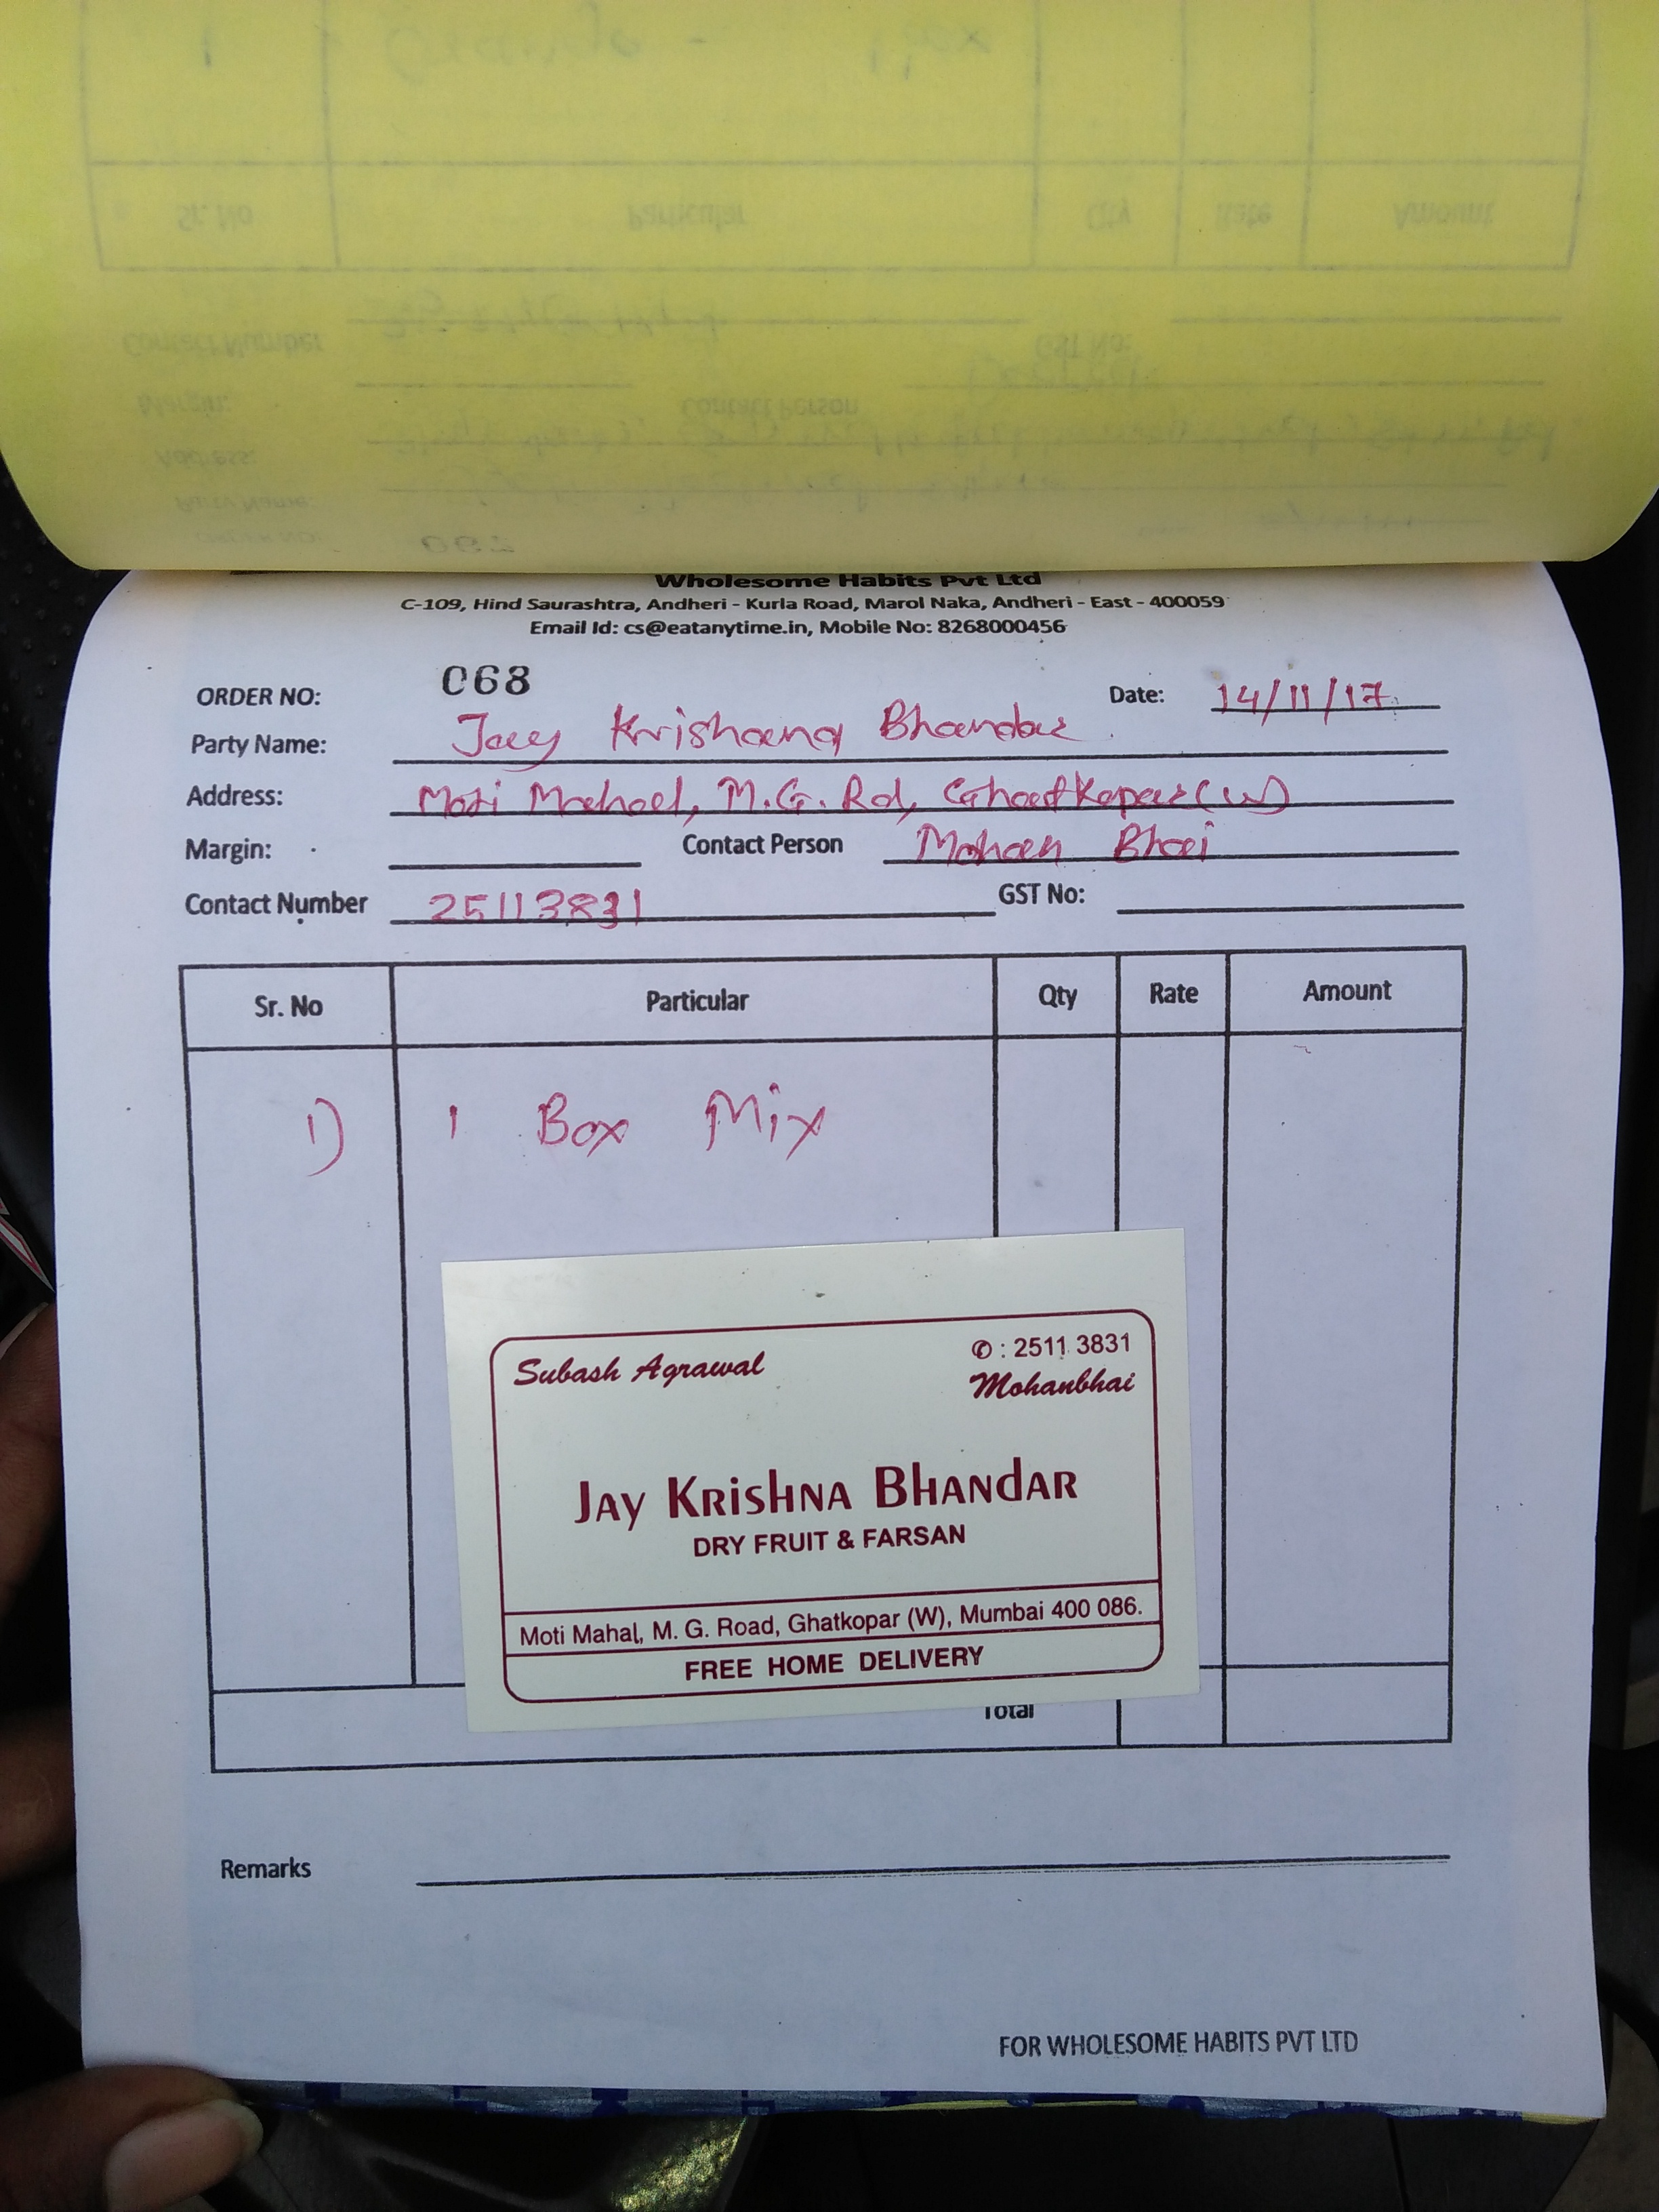 Wholesome Habits Pvt Ltd
C-109, Hind Saurashtra, Andheri - Kurla Road, Marol Naka, Andheri - East - 400059
Email Id: cs@eatanytime.in, Mobile No: 8268000456
ORDER NO: 068 Date: 14/11/17
Party Name: Jay Krishana Bhandar
Address: Moti Mahal, M.G. Rd, Ghatkopar (W)
Margin: Contact Person Mohan Bhai
Contact Number 25113831 GST No:
Sr. No Particular Qty Rate Amount
1) 1 Box Mix
Subash Agrawal ✆ : 2511 3831
Mohanbhai
JAY KRISHNA BHANDAR
DRY FRUIT & FARSAN
Moti Mahal, M. G. Road, Ghatkopar (W), Mumbai 400 086.
FREE HOME DELIVERY
Total
Remarks
FOR WHOLESOME HABITS PVT LTD